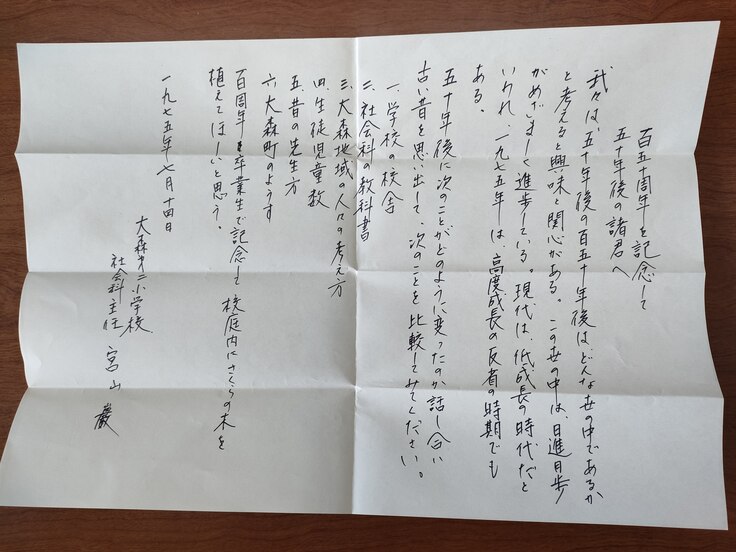 百五十周年を記念して
五十年後の諸君へ
我々は、五十年後の百五十年後は、どんな世の中であるか
と考えると興味と関心がある。この世の中は、日進月歩
がめざましく進歩している。現代は、低成長の時代だと
いわれ、一九七五年は、高度成長の反省の時期でも
ある。
五十年後に次のことがどのように変ったのか話し合い
古い昔を思い出して、次のことを比較してみてください。
一、学校の校舎
二、社会科の教科書
三、大森地域の人々の考え方
四、生徒児童数
五、昔の先生方
六、大森町のようす
百周年を卒業生で記念して校庭内にさくらの木を
植えてほしいと思う。
一九七五年七月十四日
大森第二小学校
社会科主任 宮山 巌